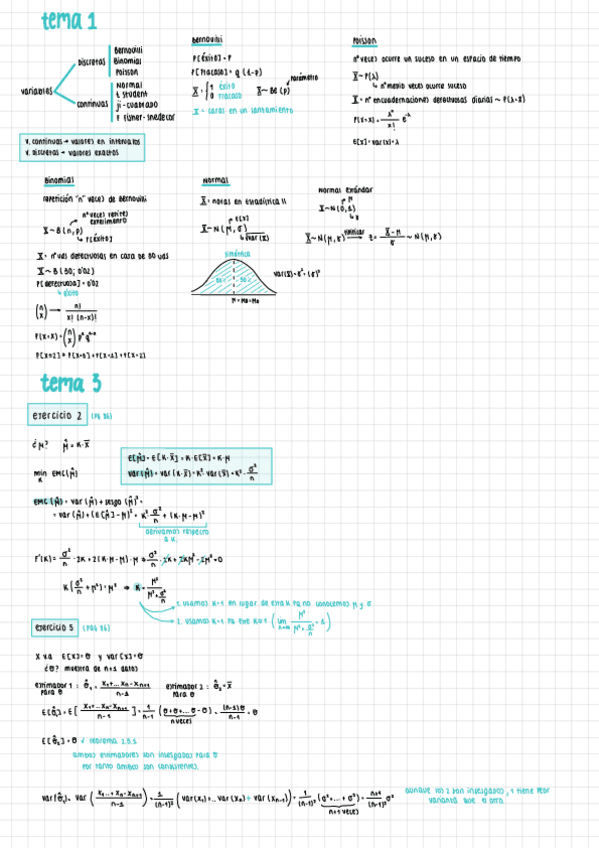 tema 1
variables
discretas
Bernoulli
Binomial
Poisson
continuas
Normal
t student
ji-cuadrado
F Fisher-Snedecor
v. continuas → valores en intervalos
v. discretas → valores exactos
Bernoulli
P[éxito] = P
P[fracaso] = q (1-p)
X = { 1 éxito
0 fracaso
X ~ Be (p)
parámetro
X = caras en un lanzamiento
Poisson
nº veces ocurre un suceso en un espacio de tiempo
X ~ P(λ)
↳ nº medio veces ocurre suceso
X = nº encuadernaciones defectuosas diarias ~ P(λ=2)
P(X=x) = λˣ / x! e^-λ
E[x] = var(x) = λ
Binomial
repetición "n" veces de Bernoulli
nº veces repites experimento
X ~ B (n, p)
↳ P[éxito]
X = nº uds defectuosas en caja de 30 uds
X ~ B (30; 0'02)
P[defectuosa] = 0'02
↳ éxito
(n x) → n! / x! (n-x)!
P(X=x) = (n x) pˣ qⁿ⁻ˣ
P[X≤2] = P[X=0] + P[X=1] + P[X=2]
Normal
X = notas en Estadística II
X ~ N(μ, σ)
E[x]
√var(x)
simétrica
μ = Me = Mo
var(x) = σ² = (σ)²
Normal estándar
X ~ N(0,1)
μ
σ
X ~ N(μ, σ) tipificar → z = X - μ / σ ~ N(μ, σ)
tema 3
ejercicio 2 (PG 26)
¿μ? μ̂ = K · x̄
min EMC(μ̂)
K
E[μ̂] = E[K·x̄] = K·E[x̄] = K·μ
var(μ̂) = var(K·x̄) = K²·var(x̄) = K²· σ²/n
EMC(μ̂) = var(μ̂) + sesgo(μ̂)² =
= var(μ̂) + (E[μ̂] - μ)² = K²· σ²/n + (K·μ - μ)²
derivamos respecto a K
F'(K) = σ²/n · 2K + 2(K·μ - μ)·μ → σ²/n · 2K + 2Kμ² - 2μ² = 0
K(σ²/n + μ²) = μ² → K = μ² / μ² + σ²/n
1. usamos K=1 en lugar de esta K pq no conocemos μ y σ
2. usamos K=1 pq ese K→1 (lim n→∞ μ² / μ² + σ²/n = 1)
ejercicio 5 (PAG 26)
X va E[x] = θ y var[x] = σ
¿θ? muestra de n+1 datos
estimador 1 : θ̂₁ = x₁+...xₙ-xₙ₊₁ / n-1
para θ
estimador 2 : θ̂₂ = x̄
para θ
E[θ̂₁] = E[ x₁+...xₙ-xₙ₊₁ / n-1 ] = 1/n-1 (θ+θ+...θ - θ) = (n-1)θ / n-1 = θ
n veces
E[θ̂₂] = θ
ambos estimadores son insesgados para θ
por tanto ambos son consistentes.
var(θ̂₁) = var ( x₁...+xₙ-xₙ₊₁ / n-1 ) = 1/(n-1)² (var(x₁)+...var(xₙ) + var(xₙ₊₁)) = 1/(n-1)² (σ²+...+σ²) = n+1/(n-1)² σ²
n+1 veces
aunque los 2 son insesgados, 1 tiene peor
varianza que el otro.